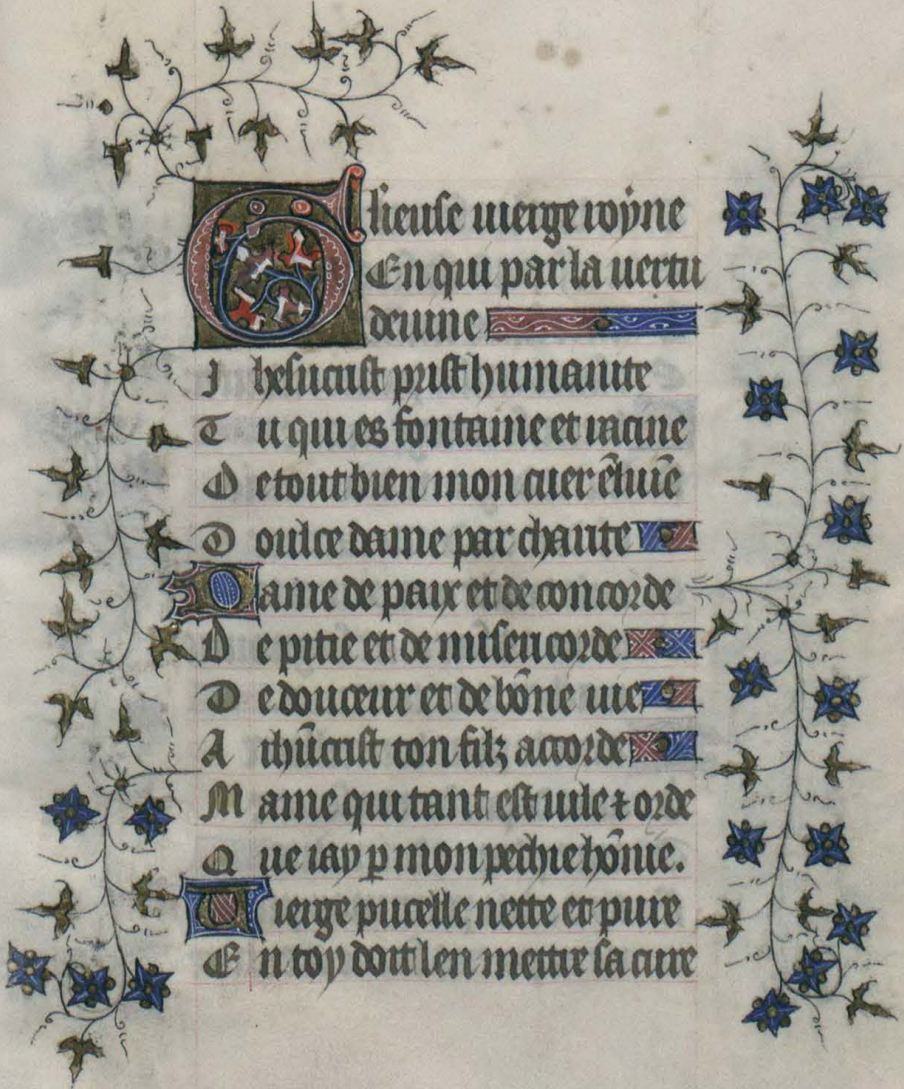 Glieuse uierge royne
En qui par la uertu
deuine
Jhesucrist prist humanite
Tu qui es fontaine et racine
De tout bien mon cuer ēluīe
Doulce dame par charite
Dame de paix et de concorde
De pitie et de misericorde
De douceur et de bōne uie
A ihūcrist ton filz accorde
Mame qui tant est uile ⁊ orde
Que iay ꝑ mon pechie hōnie.
Uierge pucelle nette et pure
En toy doit len mettre sa cure